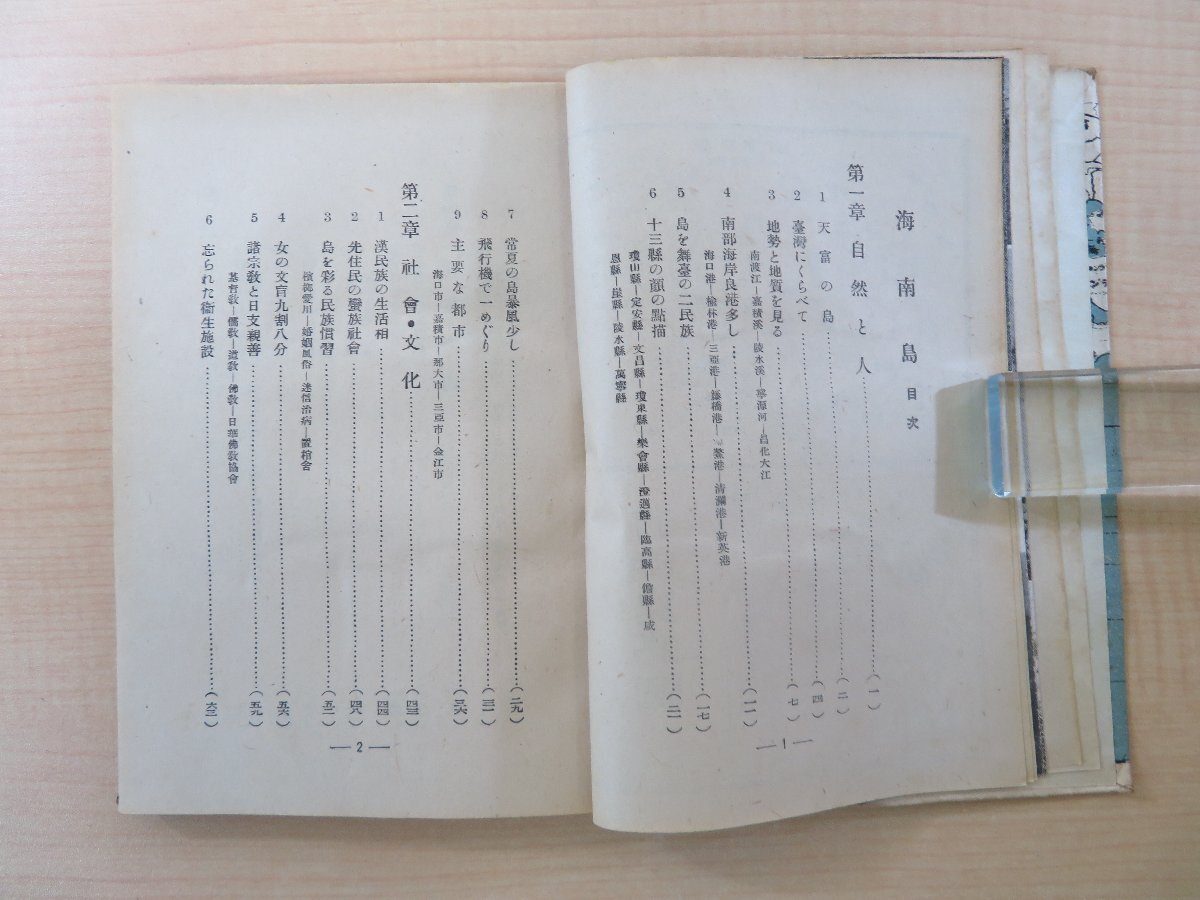 海南島 目次
第一章 自然と人……………(一)
1 天富の島……………(二)
2 臺灣にくらべて……………(四)
3 地勢と地質を見る……………(七)
南渡江—嘉積溪—陵水溪—寧源河—昌化大江
4 南部海岸良港多し……………(一一)
海口港—楡林港—三亞港—藤橋港— 鰲港—清瀾港—新英港
5 島を舞臺の二民族……………(一七)
6 十三縣の顔の點描……………(二一)
瓊山縣—定安縣—文昌縣—瓊東縣—樂會縣—澄邁縣—臨高縣—儋縣—感
恩縣—崖縣—陵水縣—萬寧縣
— 1 —
7 常夏の島暴風少し……………(二九)
8 飛行機で一めぐり……………(三一)
9 主要な都市……………(三六)
海口市—嘉積市—那大市—三亞市—金江市
第二章 社會・文化……………(四三)
1 漢民族の生活相……………(四四)
2 先住民の蠻族社會……………(四八)
3 島を彩る民族慣習……………(五二)
檳榔愛用—婚姻風俗—迷信治病—置棺舍
4 女の文盲九割八分……………(五六)
5 諸宗敎と日支親善……………(五九)
基督敎—儒敎—道敎—佛敎—日華佛敎協會
6 忘られた衞生施設……………(六三)
— 2 —